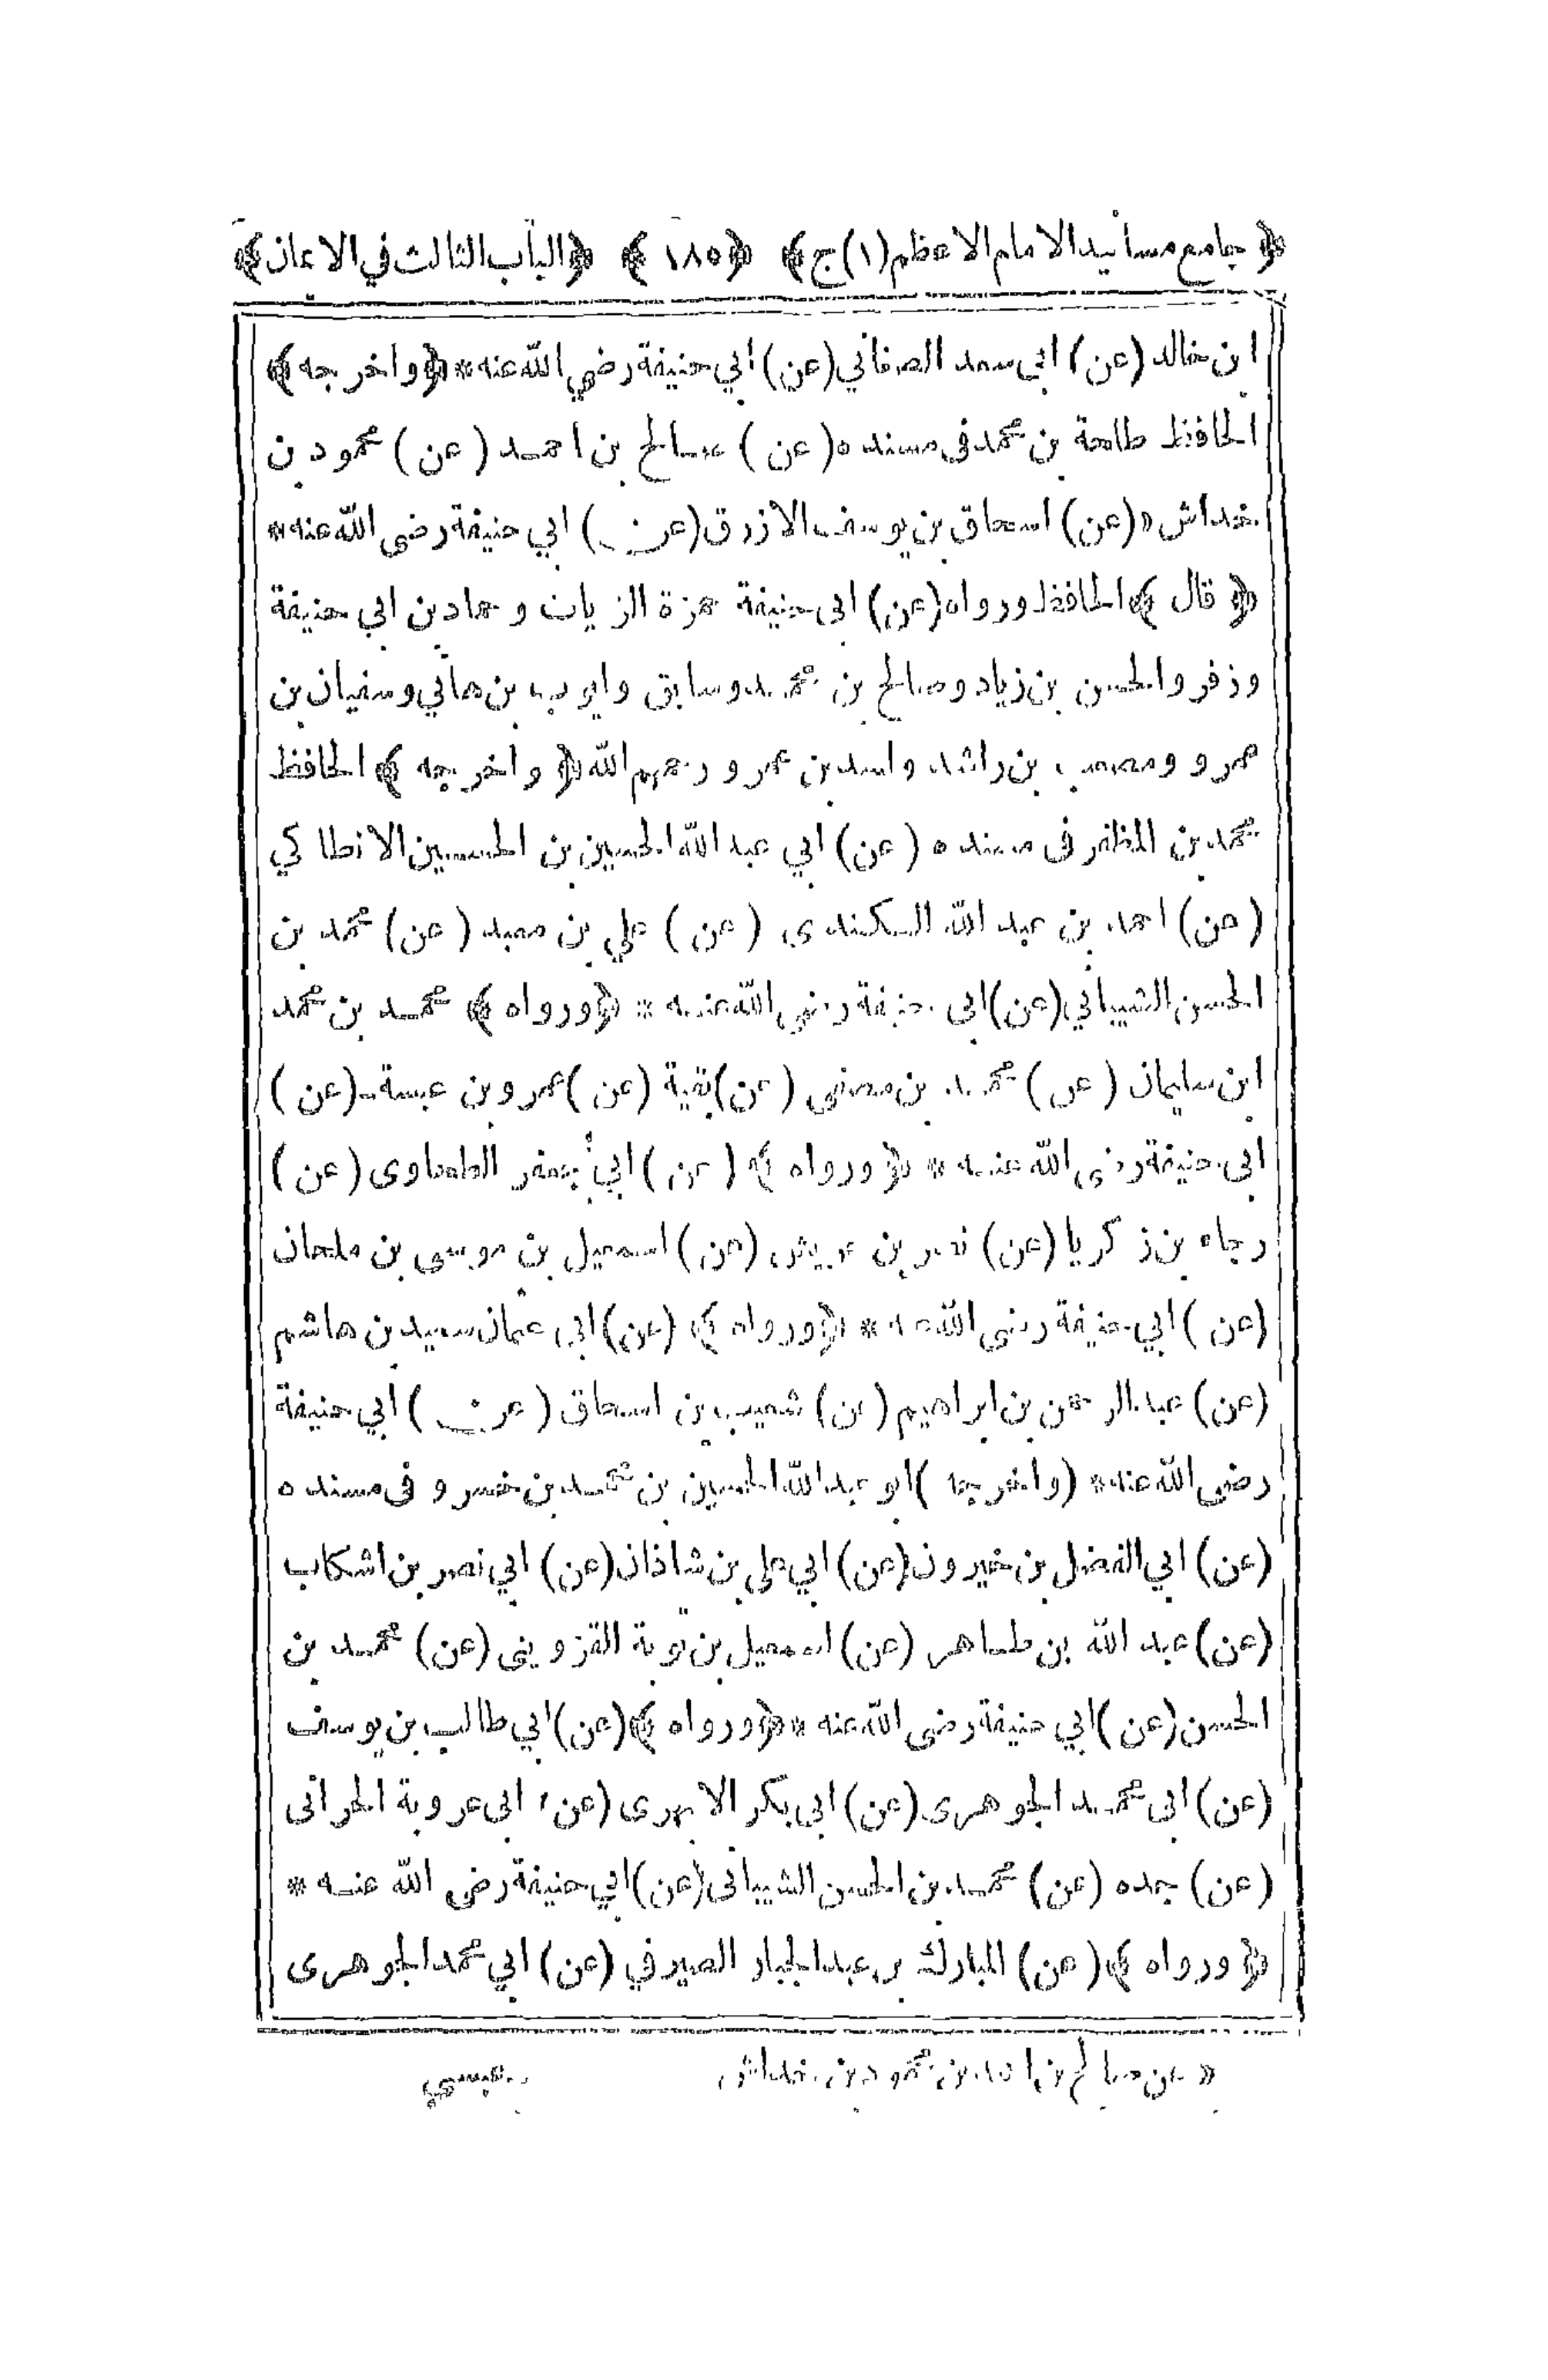 ﴿ جامع مسانيد الامام الاعظم (١) ج ﴾ ﴿ ١٨٥ ﴾ ﴿ الباب الثالث في الايمان ﴾
ابن خالد (عن) ابى سعد الصغاني (عن) ابي حنيفة رضي الله عنه * ﴿ واخرجه ﴾
الحافظ طلحة بن محمد فى مسنده (عن) صالح بن احمد (عن) محمود بن
خداش « (عن) اسحاق بن يوسف الازرق (عن) ابي حنيفة رضى الله عنه *
﴿ قال ﴾ الحافظ ورواه (عن) ابى حنيفة حمزة الزيات وحماد بن ابي حنيفة
وزفر والحسن بن زياد وصالح بن محمد وسابق وايوب بن هاني وسفيان بن
عمرو ومصعب بن راشد واسد بن عمرو رحمهم الله ﴿ واخرجه ﴾ الحافظ
محمد بن المظفر فى مسنده (عن) ابي عبد الله الحسين بن الحسين الانطاكي
(عن) احمد بن عبد الله الكندى (عن) علي بن معبد (عن) محمد بن
الحسن الشيباني (عن) ابى حنيفة رضى الله عنه * ﴿ ورواه ﴾ محمد بن محمد
ابن سليمان (عن) محمد بن مصفى (عن) بقية (عن) عمرو بن عبسة (عن)
ابى حنيفة رضى الله عنه * ﴿ ورواه ﴾ (عن) ابي جعفر الطحاوى (عن)
رجاء بن زكريا (عن) نصر بن حريش (عن) اسمعيل بن موسى بن ملحان
(عن) ابي حنيفة رضى الله عنه * ﴿ ورواه ﴾ (عن) ابى عثمان سعيد بن هاشم
(عن) عبد الرحمن بن ابراهيم (عن) شعيب بن اسحاق (عن) ابي حنيفة
رضى الله عنه * (واخرجه) ابو عبد الله الحسين بن محمد بن خسرو فى مسنده
(عن) ابي الفضل بن خيرون (عن) ابي علي بن شاذان (عن) ابي نصر بن اشكاب
(عن) عبد الله بن طاهر (عن) اسمعيل بن توبة القزوينى (عن) محمد بن
الحسن (عن) ابي حنيفة رضى الله عنه * ﴿ ورواه ﴾ (عن) ابي طالب بن يوسف
(عن) ابى محمد الجوهرى (عن) ابى بكر الابهرى (عن) ابى عروبة الحرانى
(عن) جده (عن) محمد بن الحسن الشيبانى (عن) ابي حنيفة رضي الله عنه *
﴿ ورواه ﴾ (عن) المبارك بن عبد الجبار الصيرفي (عن) ابي محمد الجوهرى
« عن صالح بن احمد بن محمود بن خداش